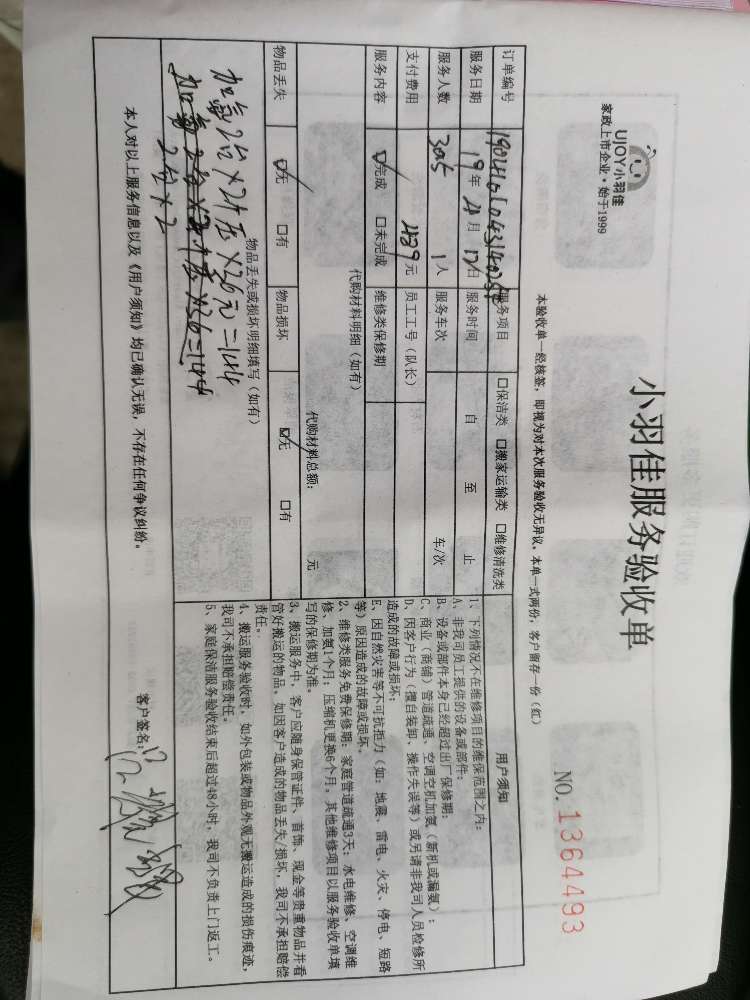 UJOY小羽佳
家政上市企业·始于1999
小羽佳服务验收单
NO. 1364493
本验收单一经核签，即视为对本次服务验收无异议。本单一式两份，客户留存一份（红）
订单编号
服务项目 口保洁类 口搬家运输类 口维修清洗类
服务日期 19年 月17日 服务时间 自 至 止
服务人数 1人 服务车次 车/次
支付费用 元 员工工号（队长）
服务内容 完成 口未完成 维修类保修期
代购材料明细（如有）
代购材料总额： 元
物品丢失 无 口有 物品损坏 无 口有
物品丢失或损坏明细填写（如有）
加氟2台×2个压×36元=144
2台×2
本人对以上服务信息以及《用户须知》均已确认无误，不存在任何争议纠纷。
用户须知
1、下列情况不在维修项目的维保范围之内：
A、非我司员工提供的设备或部件；
B、设备或部件本身已经超过出厂保修期；
C、商业（商铺）管道疏通、空调空机加氨（新机或漏氨）；
D、因客户行为（擅自装卸、操作失误等）或另请非我司人员检修所
造成的故障或损坏；
E、因自然灾害等不可抗拒力（如：地震、雷电、火灾、停电、短路
等）原因造成的故障或损坏。
2、维修类服务免费保修期：家庭管道疏通3天；水电维修、空调维
修、加氨1个月；压缩机更换6个月。其他维修项目以服务验收单填
写的保修期为准。
3、搬运服务中，客户应随身保管证件、首饰、现金等贵重物品并看
管好搬运的物品，如因客户造成的物品丢失/损坏，我司不承担赔偿
责任。
4、搬运服务验收时，如外包装或物品外观无搬运造成的损伤痕迹，
我司不承担赔偿责任。
5、家庭保洁服务验收结束后超过48小时，我司不负责上门返工。
客户签名：